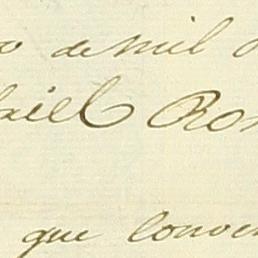 o de mil
ael Ro
que conven